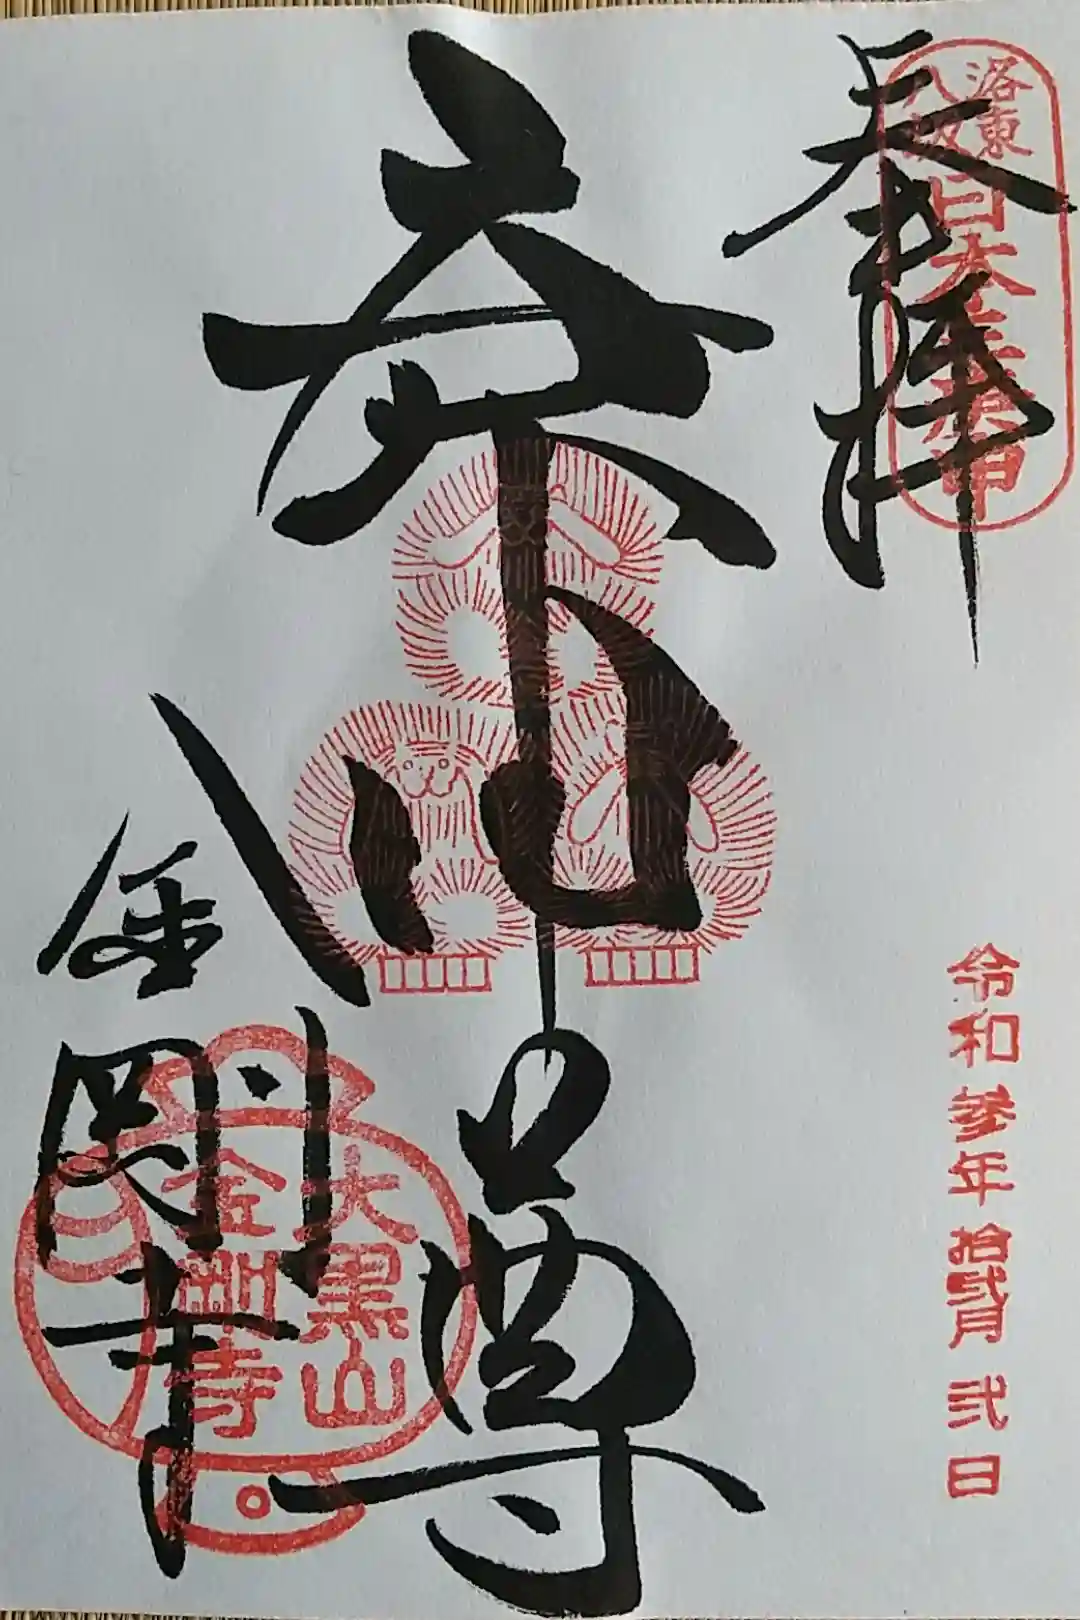 奉拝
洛東
八坂
日本三庚申
尊
令和参年拾弐月弐日
金剛寺
大黒山
金剛寺